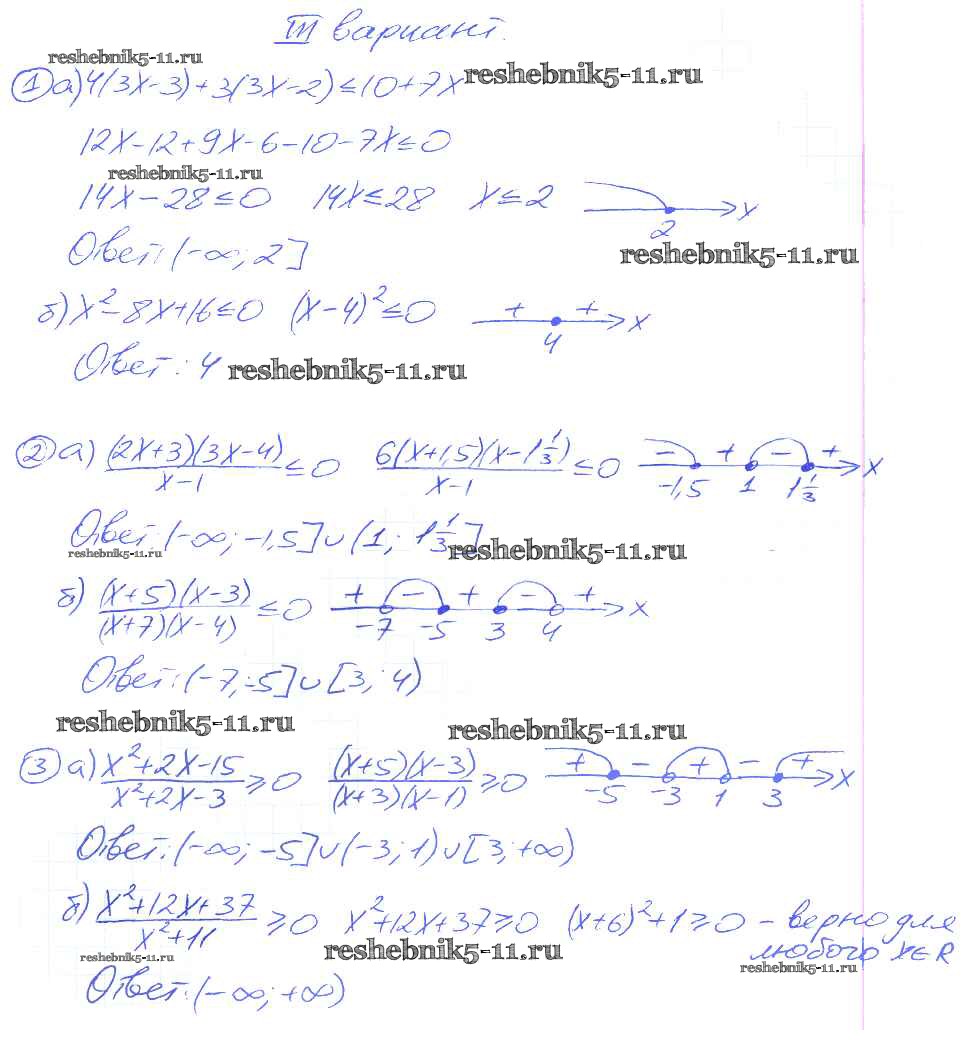 III вариант.
reshebnik5-11.ru
① а) 4(3x-3)+3(3x-2)≤10+7x reshebnik5-11.ru
12x-12+9x-6-10-7x≤0
reshebnik5-11.ru
14x-28≤0 14x≤28 x≤2 2 x
Ответ: (-∞; 2] reshebnik5-11.ru
б) x²-8x+16≤0 (x-4)²≤0 + + 4 x
Ответ: 4 reshebnik5-11.ru
② а) (2x+3)(3x-4)/(x-1) ≤0 6(x+1,5)(x-1 1/3)/(x-1) ≤0 - + - + -1,5 1 1 1/3 x
Ответ: (-∞; -1,5]∪(1; 1 1/3]
reshebnik5-11.ru reshebnik5-11.ru
б) (x+5)(x-3)/((x+7)(x-4)) ≤0 + - + - + -7 -5 3 4 x
Ответ: (-7; -5]∪[3; 4)
reshebnik5-11.ru reshebnik5-11.ru
③ а) (x²+2x-15)/(x²+2x-3) ≥0 (x+5)(x-3)/((x+3)(x-1)) ≥0 + - + - + -5 -3 1 3 x
Ответ: (-∞; -5]∪(-3; 1)∪[3; +∞)
б) (x²+12x+37)/(x²+11) ≥0 x²+12x+37≥0 (x+6)²+1≥0 – верно для
любого x∈R
reshebnik5-11.ru reshebnik5-11.ru reshebnik5-11.ru
Ответ: (-∞; +∞)